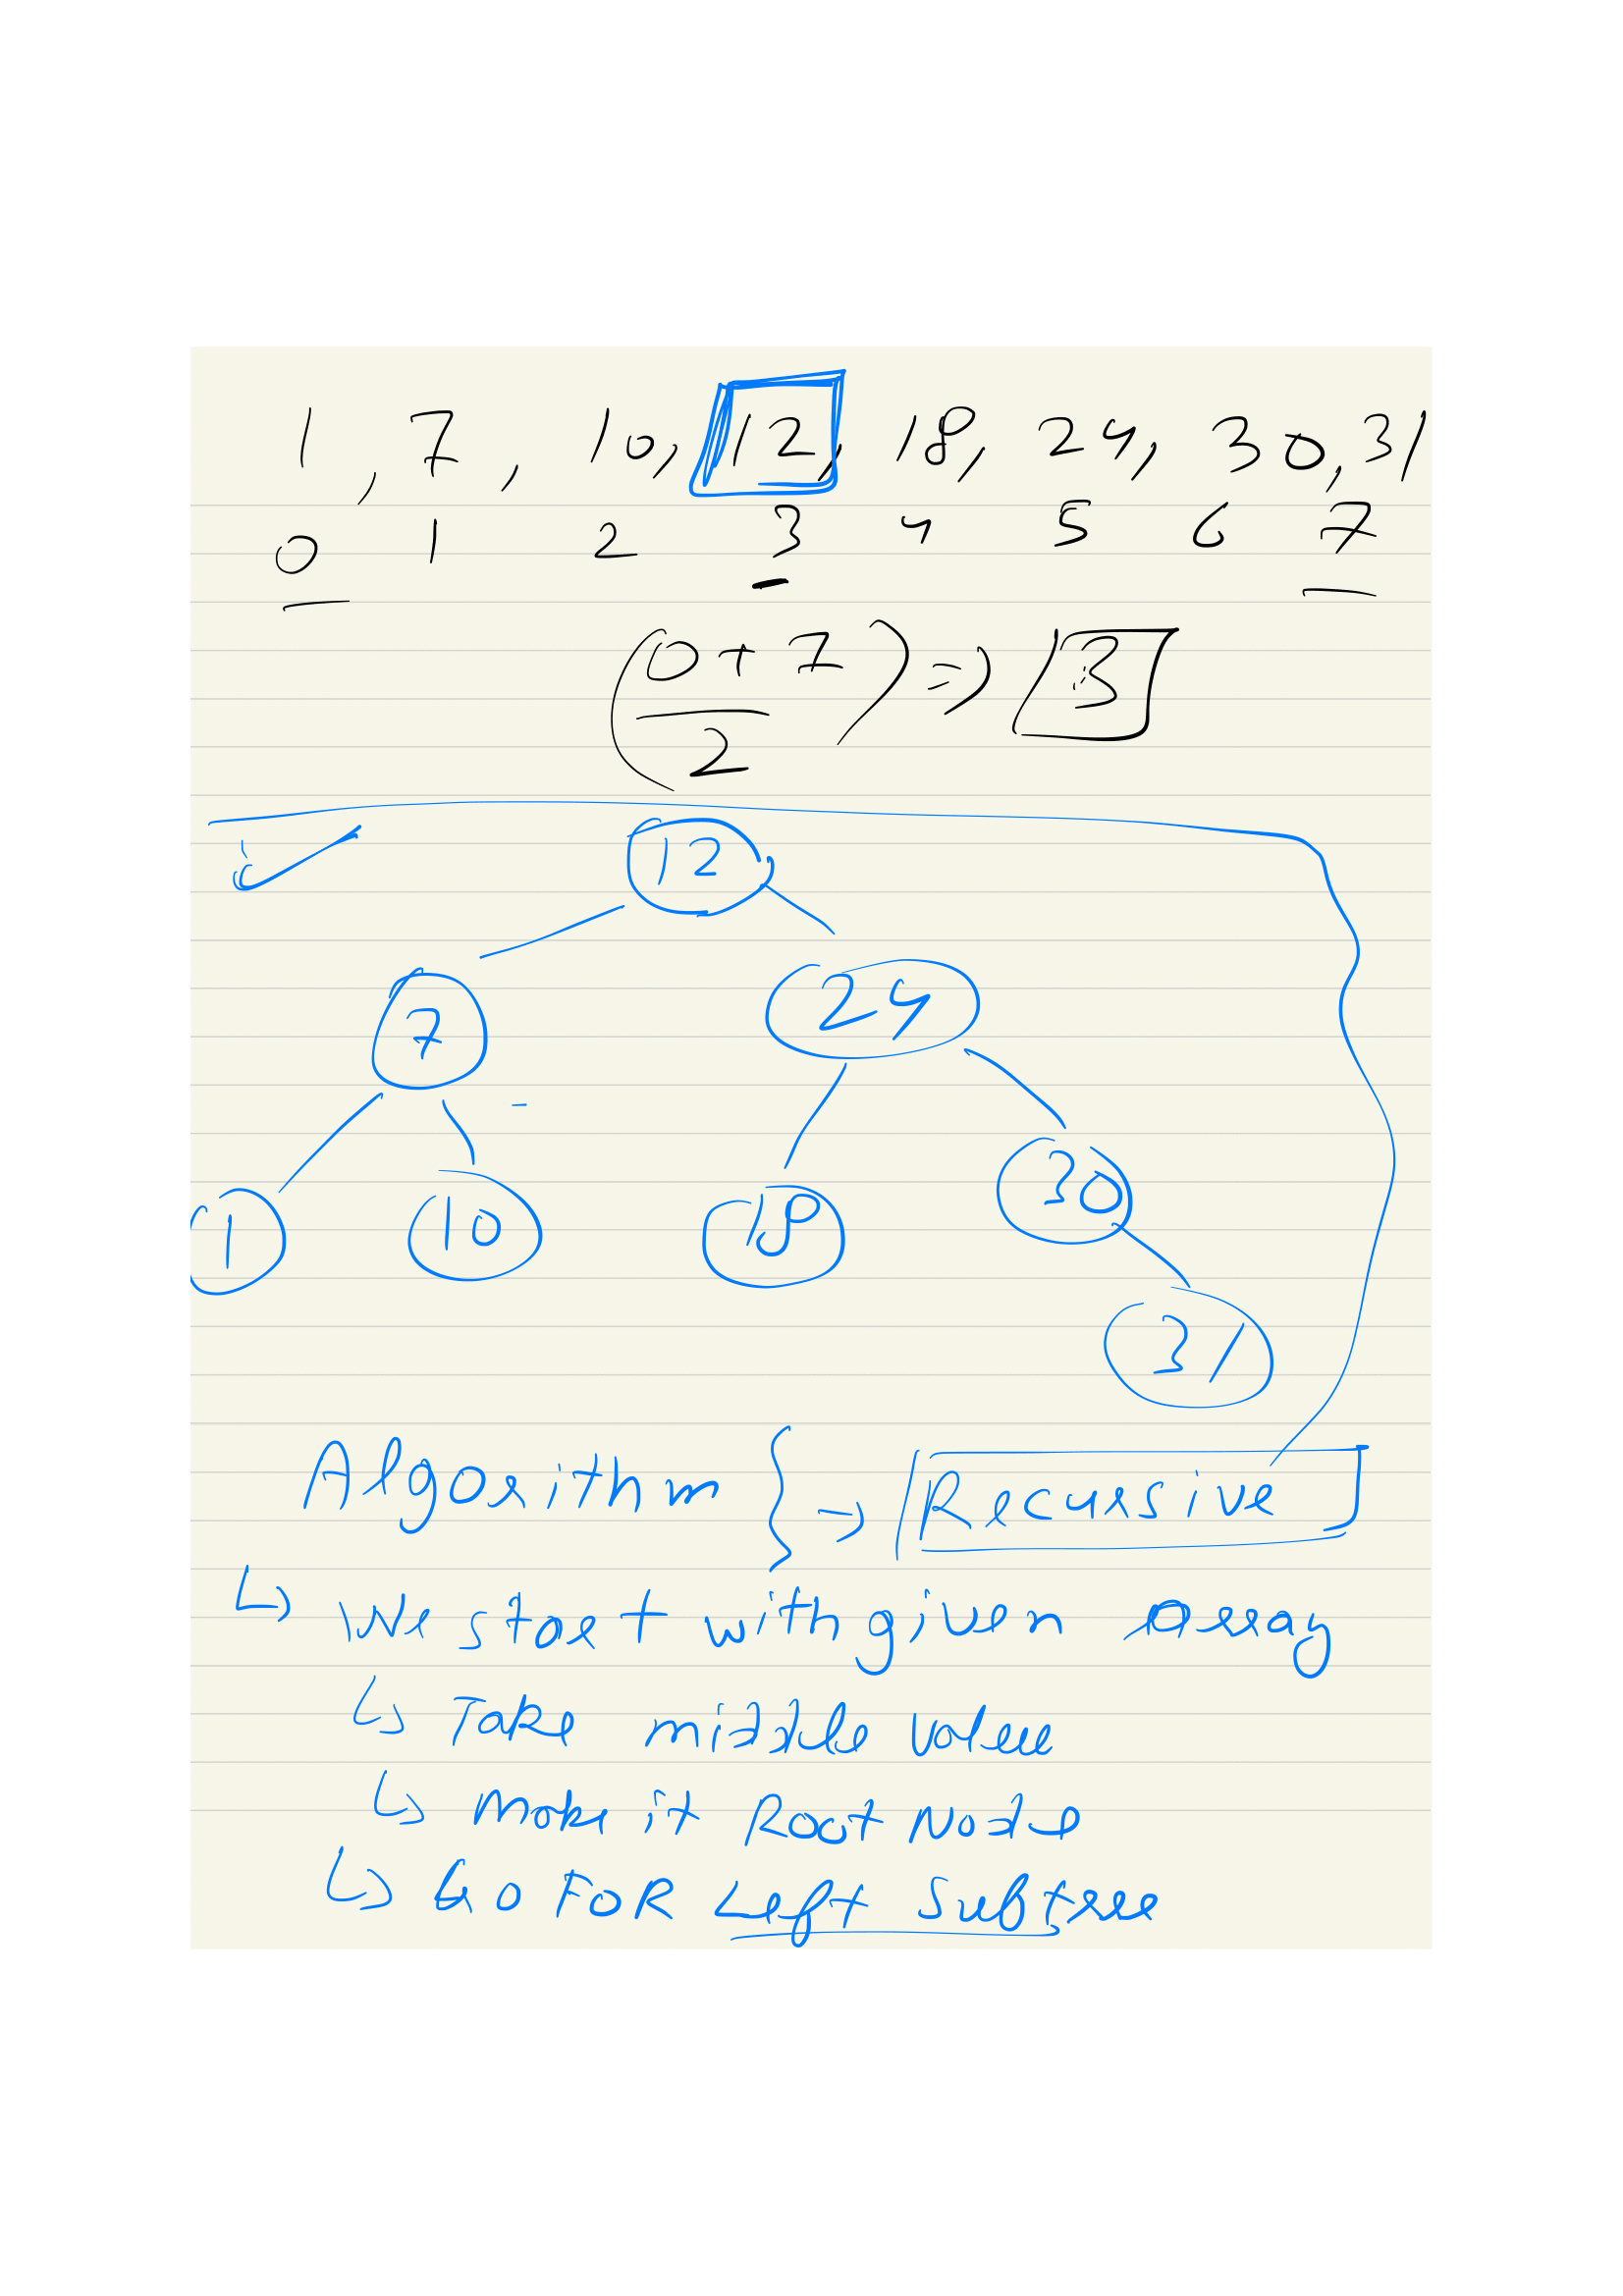 1, 7, 10, 12, 18, 24, 30, 31
0 1 2 3 4 5 6 7
(0 + 7 / 2) => 3
12
7 24
1 10 18 30
31
Algorithm } → [Recursive]
↳ We start with given array
↳ Take middle value
↳ Make it Root Node
↳ Go FOR Left Subtree